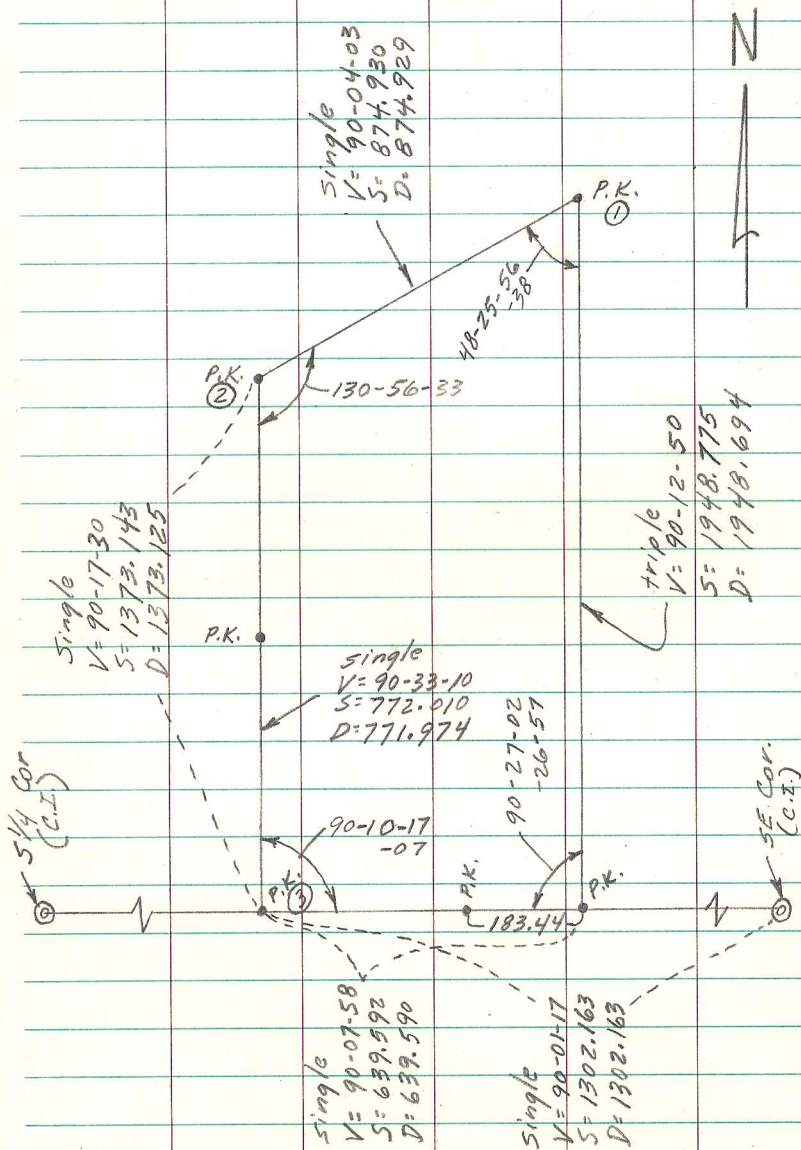 N
single
V= 90-04-03
S= 874.930
D= 874.929
P.K.
①
48-25-56
-38
P.K.
②
130-56-33
Single
V= 90-17-30
S= 1373.143
D= 1373.125
triple
V= 90-12-50
S= 1948.775
D= 1948.694
P.K.
single
V= 90-33-10
S= 772.010
D= 771.974
90-27-02
-26-57
S 1/4 Cor
(C.I.)
90-10-17
-07
P.K.
③
P.K.
183.44
P.K.
SE Cor.
(C.I.)
single
V= 90-07-58
S= 639.592
D= 639.590
Single
V= 90-01-17
S= 1302.163
D= 1302.163